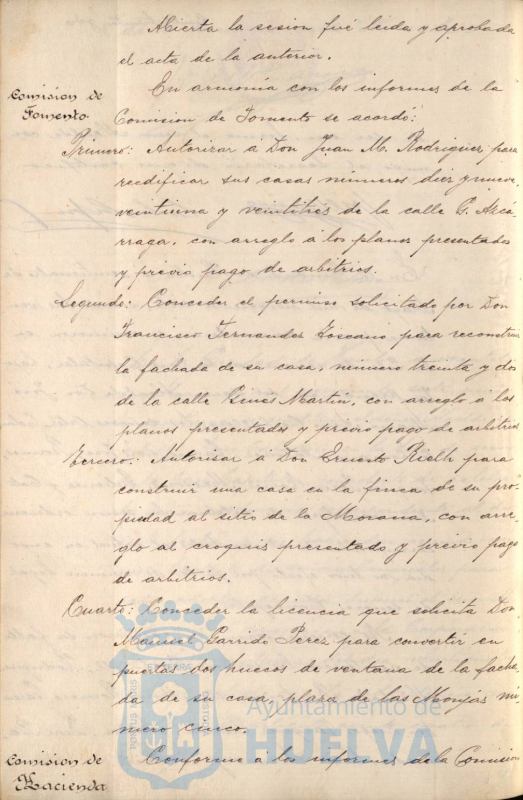 Abierta la sesion fué leida y aprobada
el acta de la anterior.
Comision de
Fomento.
En armonía con los informes de la
Comision de Fomento se acordó:
Primero: Autorizar á Don Juan M. Rodriguez para
reedificar sus casas números diez y nueve,
veintiuna y veintitrés de la calle G. Azcá-
rraga, con arreglo á los planos presentados
y prévio pago de arbitrios.
Segundo: Conceder el permiso solicitado por Don
Francisco Fernandez Toscano para reconstruir
la fachada de su casa, número treinta y dos
de la calle Ginés Martin, con arreglo á los
planos presentados y prévio pago de arbitrios
Tercero: Autorisar á Don Ernesto Rielh para
construir una casa en la finca de su pro-
piedad al sitio de la Morana, con arre-
glo al croquis presentado y prévio pago
de arbitrios.
Cuarto: Conceder la licencia que solicita Don
Manuel Garrido Perez para convertir en
puertas dos huecos de ventana de la facha-
da de su casa, plaza de las Monjas nú-
mero cinco.
Comision de
Hacienda
Conforme a los informes de la Comision
Ayuntamiento de
HUELVA